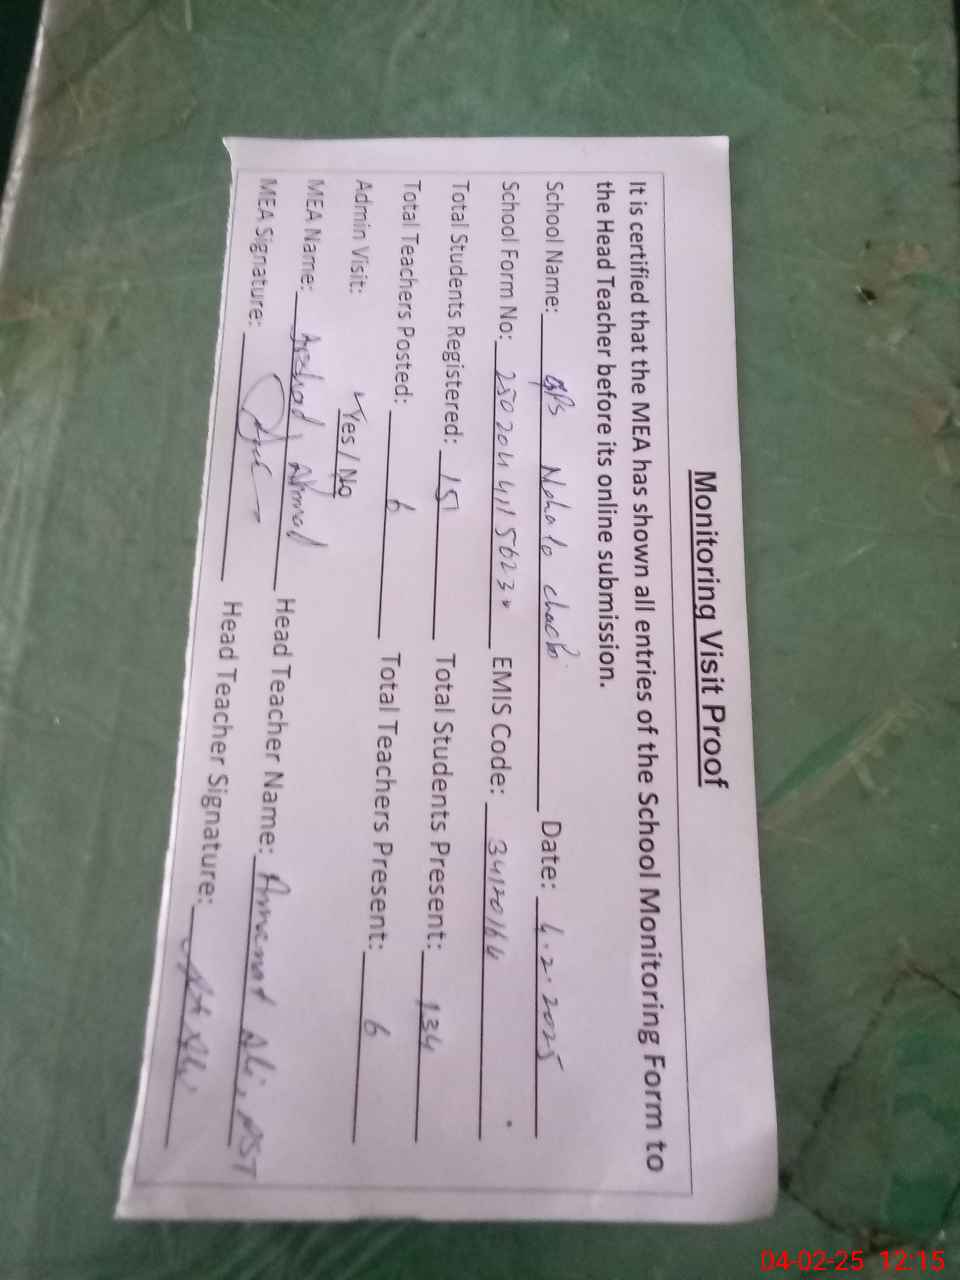 Monitoring Visit Proof
It is certified that the MEA has shown all entries of the School Monitoring Form to
the Head Teacher before its online submission.
School Name: GPS chack Date: 4.2.2025
School Form No: EMIS Code: 34120164
Total Students Registered: 151 Total Students Present: 134
Total Teachers Posted: 6 Total Teachers Present: 6
Admin Visit: Yes / No
MEA Name: Arshad Ahmad Head Teacher Name: Ali, PST
MEA Signature: Head Teacher Signature:
04-02-25 12:15